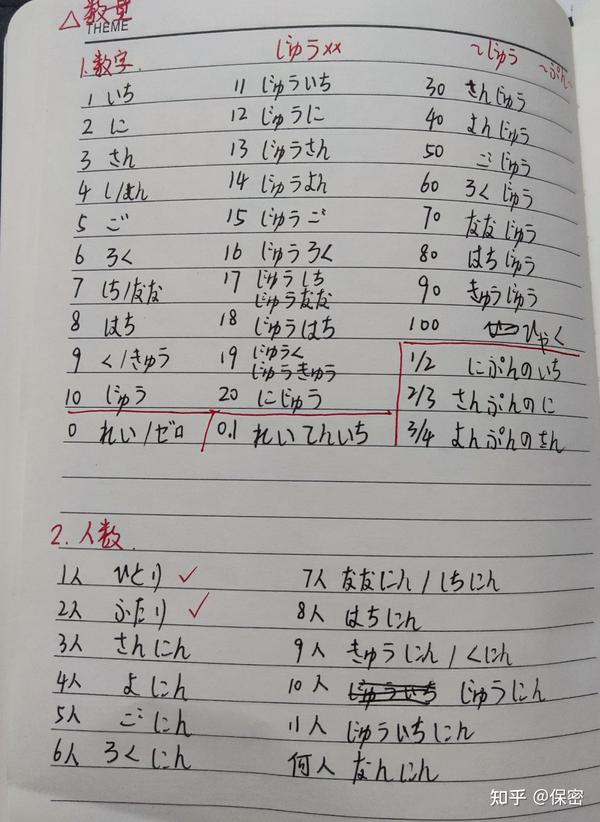 △数量
THEME
1.数字 じゅう×× ~じゅう ~ぷん~
1 いち 11 じゅういち 30 さんじゅう
2 に 12 じゅうに 40 よんじゅう
3 さん 13 じゅうさん 50 ごじゅう
4 し/よん 14 じゅうよん 60 ろくじゅう
5 ご 15 じゅうご 70 ななじゅう
6 ろく 16 じゅうろく 80 はちじゅう
7 しち/なな 17 じゅうしち じゅうなな 90 きゅうじゅう
8 はち 18 じゅうはち 100 ひゃく
9 く/きゅう 19 じゅうく じゅうきゅう 1/2 にぷんのいち
10 じゅう 20 にじゅう 2/3 さんぷんのに
0 れい/ゼロ 0.1 れいてんいち 3/4 よんぷんのさん
2.人数
1人 ひとり ✓ 7人 ななにん/しちにん
2人 ふたり ✓ 8人 はちにん
3人 さんにん 9人 きゅうにん/くにん
4人 よにん 10人 じゅういち じゅうにん
5人 ごにん 11人 じゅういちにん
6人 ろくにん 何人 なんにん
知乎 @保密